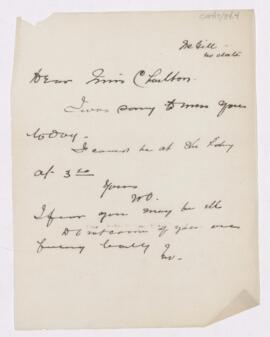 McGill
no date
Dear Miss Charlton
I was sorry to miss you
today.
I cannot be at the Liby
at 3 00
Yours
WO.
I fear you may be ill
Do not come if you are
feeling badly